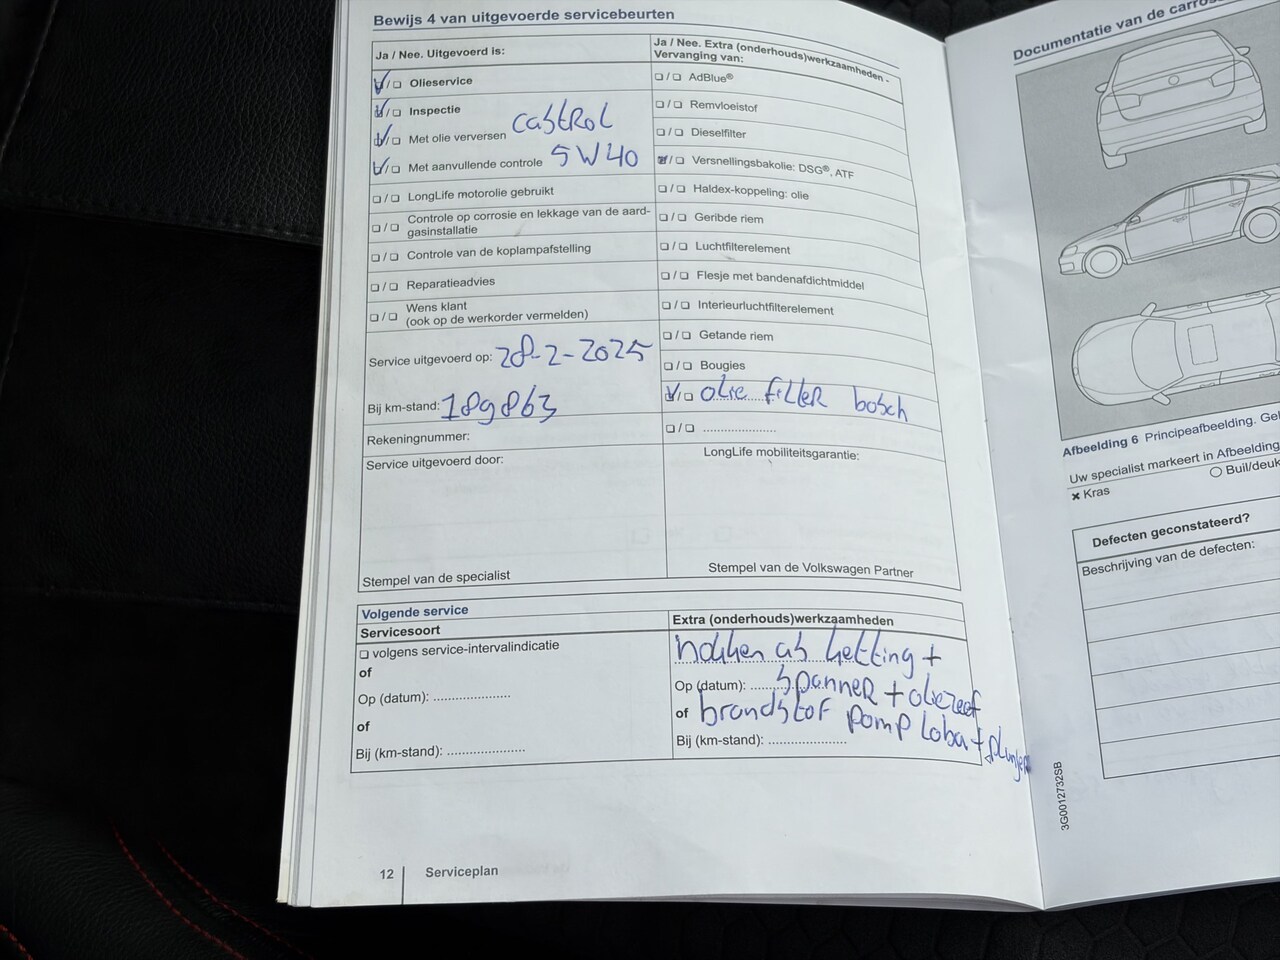 Bewijs 4 van uitgevoerde servicebeurten
Ja / Nee. Uitgevoerd is:
Olieservice
Inspectie
Met olie verversen castrol
Met aanvullende controle 5W40
LongLife motorolie gebruikt
Controle op corrosie en lekkage van de aard-
gasinstallatie
Controle van de koplampafstelling
Reparatieadvies
Wens klant
(ook op de werkorder vermelden)
Service uitgevoerd op: 28-2-2025
Bij km-stand: 189863
Rekeningnummer:
Service uitgevoerd door:
Stempel van de specialist
Ja / Nee. Extra (onderhouds)werkzaamheden -
Vervanging van:
AdBlue®
Remvloeistof
Dieselfilter
Versnellingsbakolie: DSG®, ATF
Haldex-koppeling: olie
Geribde riem
Luchtfilterelement
Flesje met bandenafdichtmiddel
Interieurluchtfilterelement
Getande riem
Bougies
olie filter bosch
LongLife mobiliteitsgarantie:
Stempel van de Volkswagen Partner
Volgende service
Servicesoort
volgens service-intervalindicatie
of
Op (datum):
of
Bij (km-stand):
Extra (onderhouds)werkzaamheden
nokken as ketting +
Op (datum): spanner + oliezeef
of brandstof pomp
Bij (km-stand):
12 Serviceplan
Documentatie van de
Afbeelding 6 Principeafbeelding.
Uw specialist markeert in Afbeelding
Kras Buil/deuk
Defecten geconstateerd?
Beschrijving van de defecten:
3G0012732SB